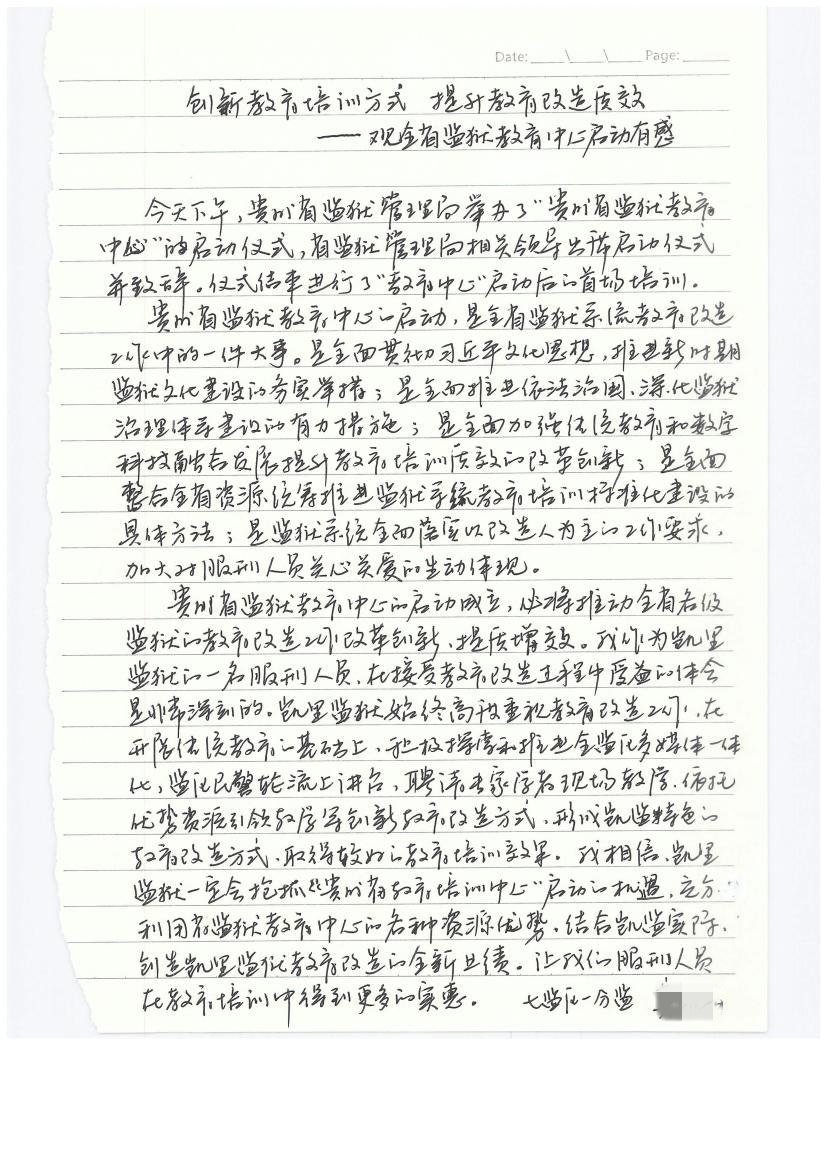 Date: ____\____\____ Page: ______
创新教育培训方式 提升教育改造质效
——观全省监狱教育中心启动有感
今天下午，贵州省监狱管理局举办了“贵州省监狱教育
中心”的启动仪式，省监狱管理局相关领导出席启动仪式
并致辞。仪式结束进行了“教育中心”启动后的首场培训。
贵州省监狱教育中心的启动，是全省监狱系统教育改造
工作中的一件大事。是全面贯彻习近平文化思想，推进新时期
监狱文化建设的务实举措；是全面推进依法治国、深化监狱
治理体系建设的有力措施；是全面加强传统教育和数字
科技融合发展提升教育培训质效的改革创新；是全面
整合全省资源统筹推进监狱系统教育培训标准化建设的
具体方法；是监狱系统全面落实以改造人为主的工作要求，
加大对服刑人员关心关爱的生动体现。
贵州省监狱教育中心的启动成立，必将推动全省各级
监狱的教育改造工作改革创新、提质增效。我作为凯里
监狱的一名服刑人员，在接受教育改造过程中受益的体会
是非常深刻的。凯里监狱始终高度重视教育改造工作，在
开展传统教育的基础上，积极探索和推进全监区多媒体一体
化，监区民警轮流上讲台，聘请专家学者现场教学，依托
优势资源引领教学等创新教育改造方式，形成凯监特色的
教育改造方式，取得较好的教育培训效果。我相信，凯里
监狱一定会抢抓“贵州省教育培训中心”启动的机遇，充分
利用省监狱教育中心的各种资源优势，结合凯监实际，
创造凯里监狱教育改造的全新业绩。让我们服刑人员
在教育培训中得到更多的实惠。 七监区一分监